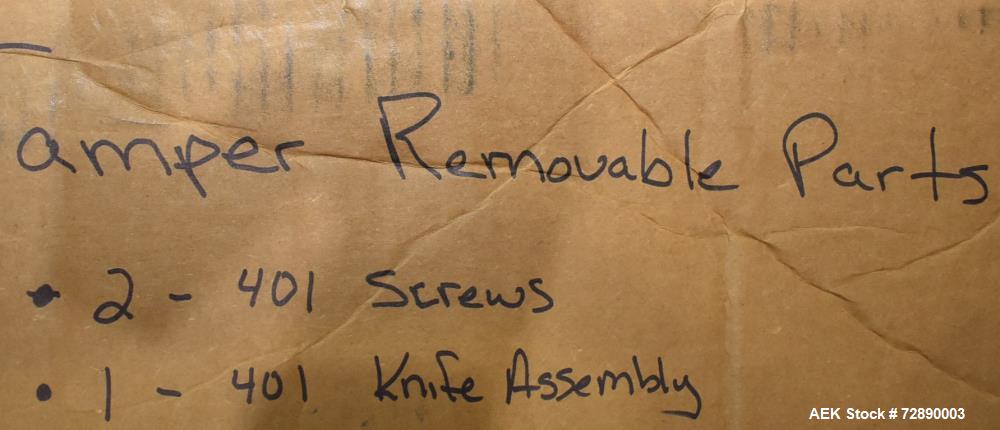 amper Removable Parts
• 2 - 401 Screws
• 1 - 401 Knife Assembly
AEK Stock # 72890003